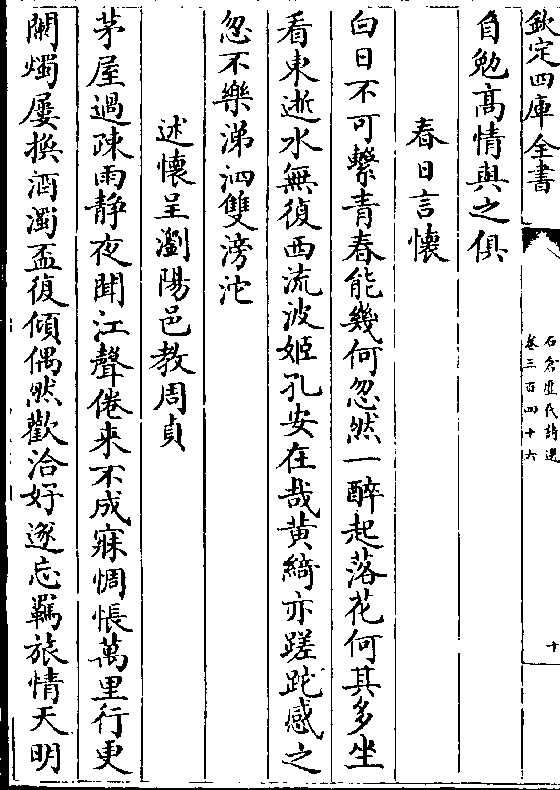 欽定四庫全書
石倉歷代詩選
卷三百四十六
十
自勉高情與之俱
春日言懷
白日不可繫青春能幾何忽然一醉起落花何其多坐
看東逝水無復西流波姬孔安在哉黄綺亦蹉跎感之
忽不樂涕泗雙滂沱
述懷呈瀏陽邑教周貞
茅屋過疎雨静夜聞江聲倦来不成寐惆悵萬里行更
闌燭屢換酒濁盃復傾偶然歡洽好遂忘羈旅情天明